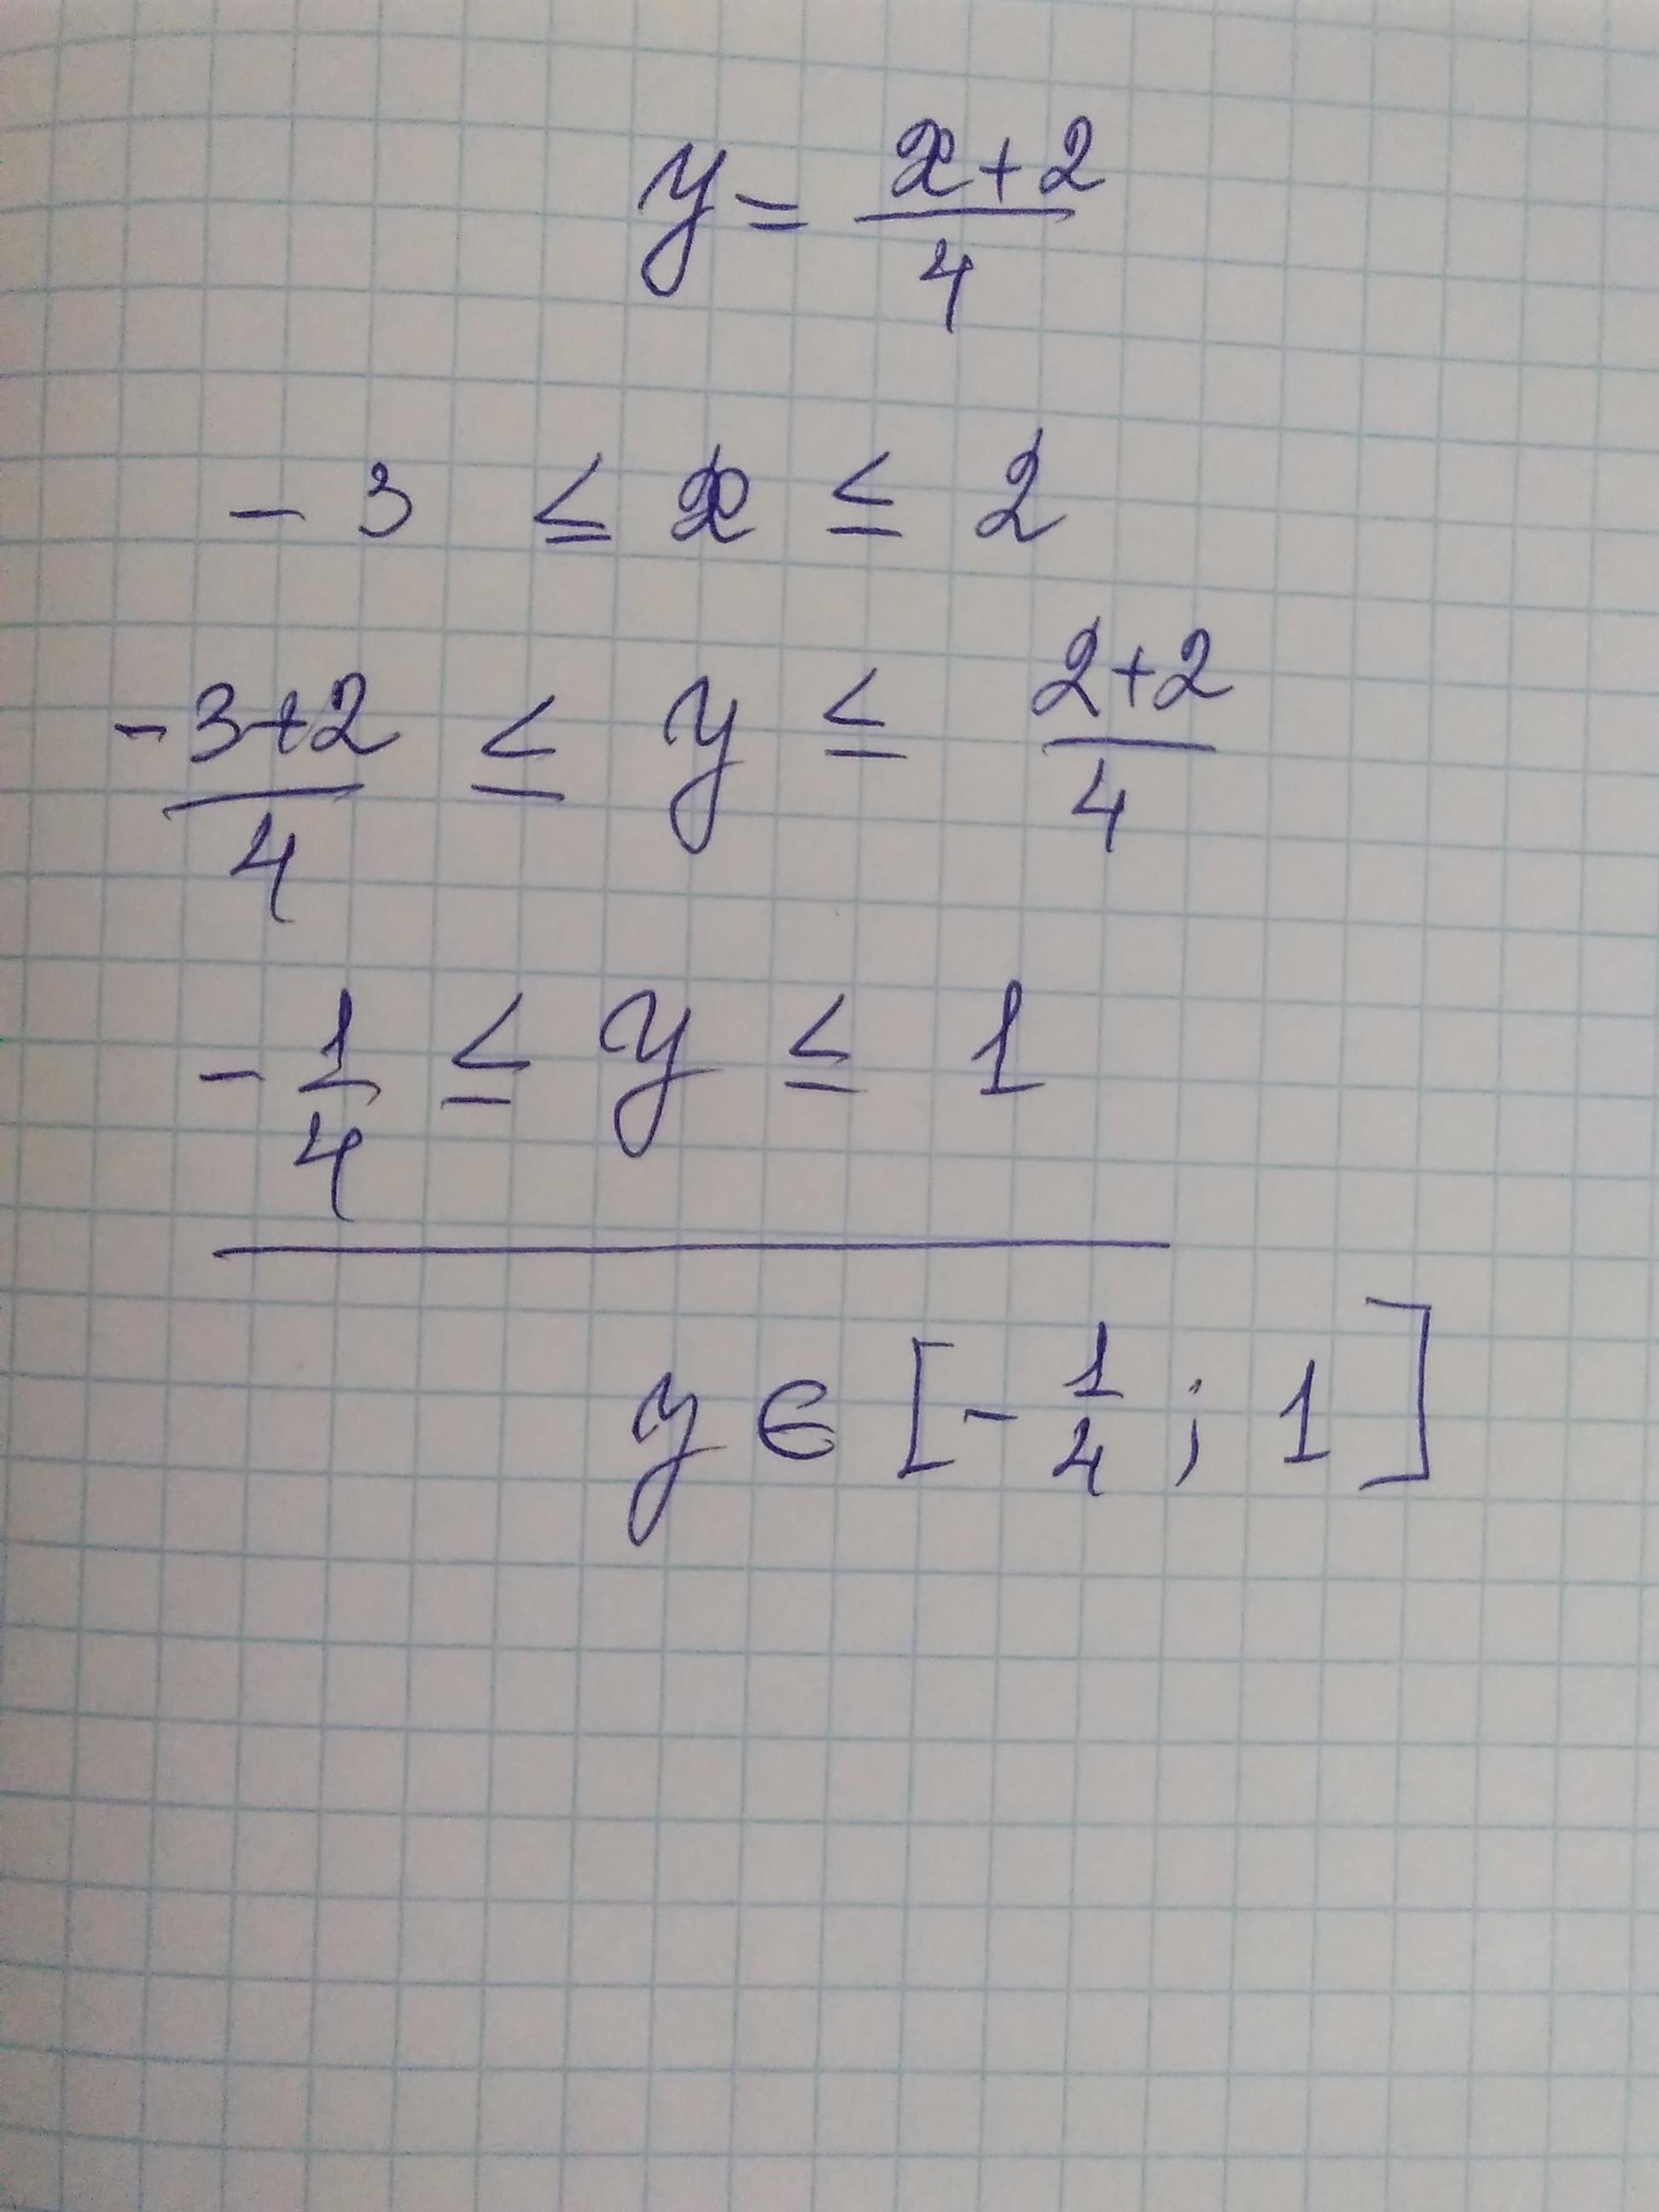 y = (x+2)/4
-3 ≤ x ≤ 2
(-3+2)/4 ≤ y ≤ (2+2)/4
-1/4 ≤ y ≤ 1
y ∈ [-1/4; 1]